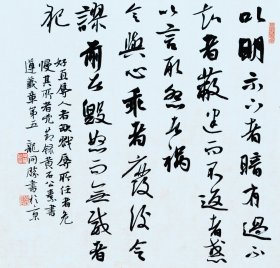 以明示下者暗過不
知者蔽迷而不返者惑
以言取怨者禍
令與心乖者廢後令
謬前者毀怒而無威者
犯
好直辱人者殃戮辱所任者危
慢其所敬者凶節錄黃石公素書
遵義章第五 龍開勝書於京